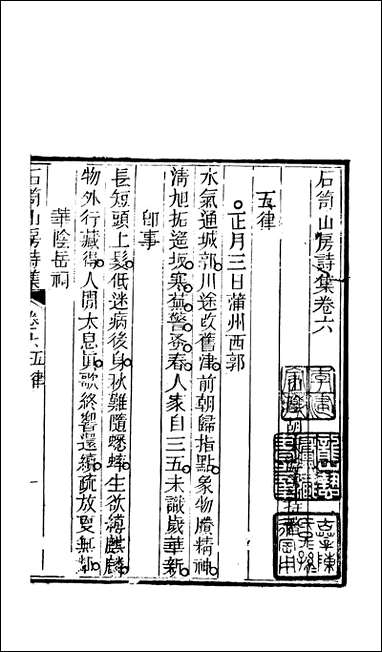 石笥山房詩集卷六
五律
正月三日蒲州西郭
水氣通城郭川途改舊津前朝歸指點象物騰精神
淸旭拓遥坂寒益警蚤春人家自三五未識歲華新
卽事
長短頭上髮低迷病後身秋難隨蟋蟀生欲縛麒麟
物外行藏得人間太息眞歌終響還續疏放夏無
華陰岳祠
石笥山房詩集
卷六五律